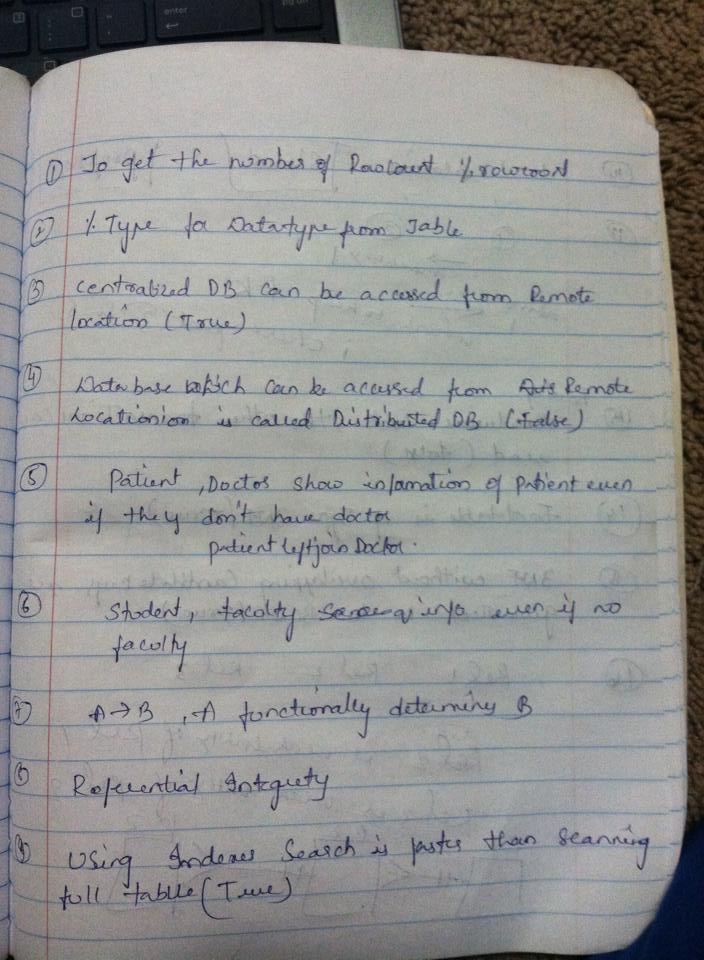 ① To get the number of Rowcount %rowcount
② % Type for Datatype from Table
③ centralized DB can be accessed from Remote
location (True)
④ Database which can be accessed from Remote
Locationion is called Distributed DB (False)
⑤ Patient, Doctor show information of patient even
if they don't have doctor
patient left join Doctor.
⑥ Student, faculty info even if no
faculty
⑦ A→B, A functionally determines B
⑧ Referential Integrity
⑨ Using Indexes Search is faster than scanning
full table (True)
enter